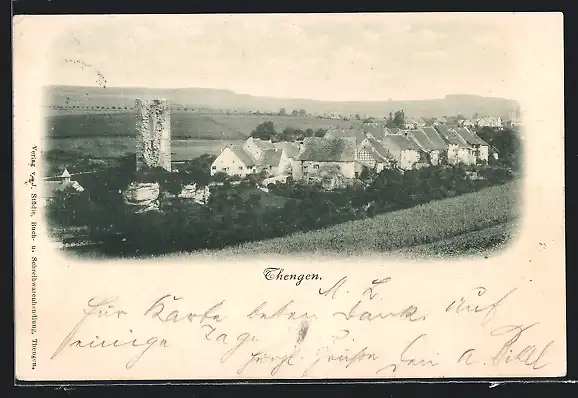 Thengen.
M. L.
Für Karte besten Dank. Auf
einige Tage
herzl. Grüsse Dein A.
Verlag v. J. Stüdle, Buch- u. Schreibwarenhandlung, Thengen.